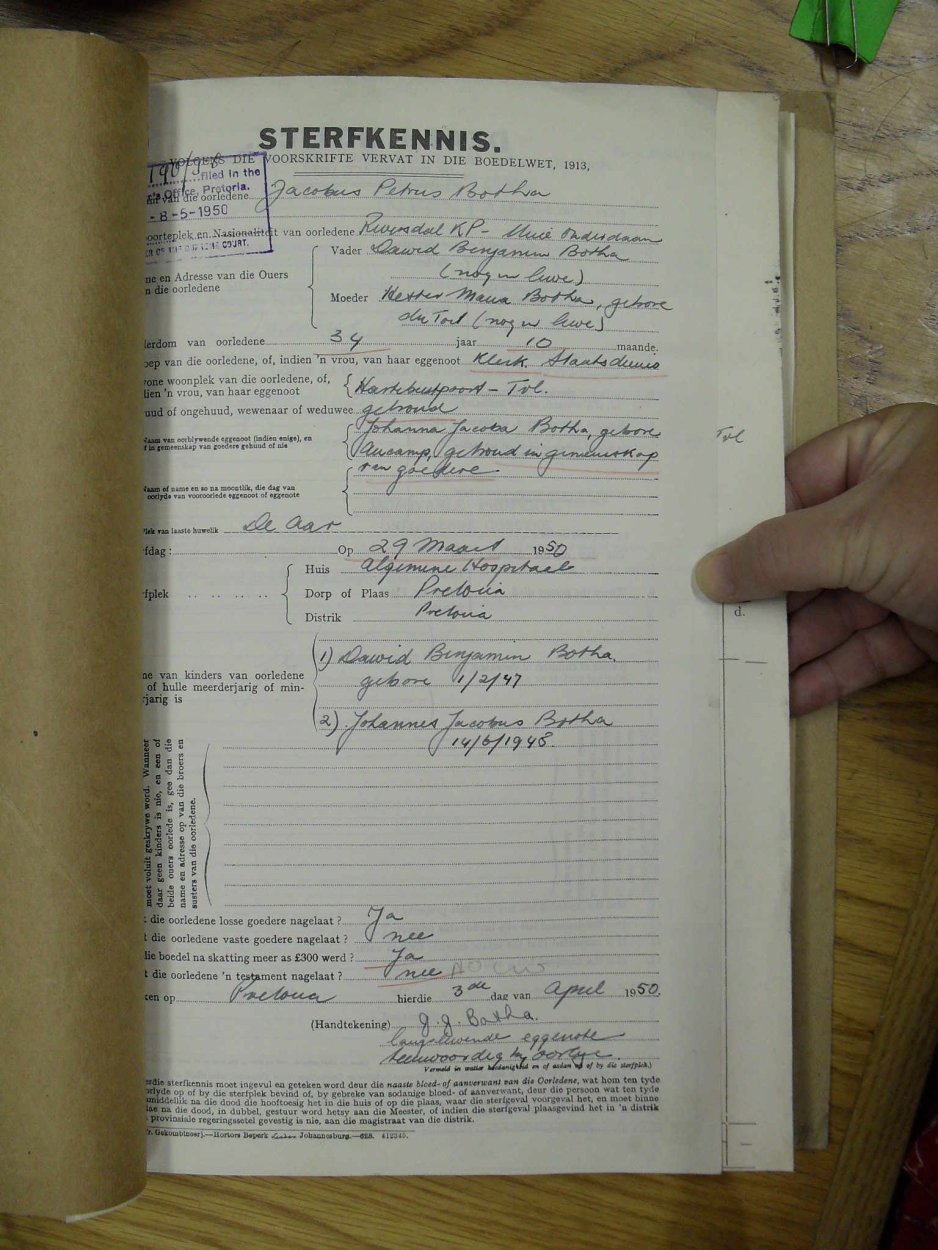 STERFKENNIS.
VOLGENS DIE VOORSKRIFTE VERVAT IN DIE BOEDELWET, 1913,
filed in the
Office, Pretoria.
-8-5-1950
COURT.
van die oorledene Jacobus Petrus Botha
oorteplek en Nasionaliteit van oorledene Riversdal KP - Unie Onderdaan
ne en Adresse van die Ouers
n die oorledene
Vader Dawid Benjamin Botha
(nog in lewe)
Moeder Hester Maria Botha, gebore
du Toit (nog in lewe)
erdom van oorledene 34 jaar 10 maande.
oep van die oorledene, of, indien 'n vrou, van haar eggenoot Klerk. Staatsdiens
wone woonplek van die oorledene, of,
dien 'n vrou, van haar eggenoot
Hartebeestpoort - Tvl.
uud of ongehuud, wewenaar of weduwee getroud
Naam van oorblywende eggenoot (indien enige), en
f in gemeenskap van goedere gehuud of nie
Johanna Jacoba Botha, gebore
Aucamp, getroud in gemeenskap
van goedere.
Naam of name en so na moontlik, die dag van
oorlyde van vooroorlede eggenoot of eggenote
lek van laaste huwelik De Aar
fdag: Op 29 Maart 1950
rfplek
Huis Algemene Hospitaal
Dorp of Plaas Pretoria
Distrik Pretoria
me van kinders van oorledene
of hulle meerderjarig of min-
rjarig is
1) Dawid Benjamin Botha.
gebore 1/2/47
2) Johannes Jacobus Botha
14/6/1948.
moet voluit geskrywe word. Wanneer
daar geen kinders is nie, en een of
beide ouers oorlede is, gee dan die
name en adresse op van die broers en
susters van die oorledene.
t die oorledene losse goedere nagelaat? Ja
t die oorledene vaste goedere nagelaat? nee
die boedel na skatting meer as £300 werd? Ja
t die oorledene 'n testament nagelaat? nee
ken op Pretoria hierdie 3de dag van April 1950.
(Handtekening) J. J. Botha.
langslewende eggenote
teenwoordig by oorlye.
erdie sterfkennis moet ingevul en geteken word deur die naaste bloed- of aanverwant van die Oorledene, wat hom ten tyde
orlyde op of by die sterfplek bevind of, by gebreke van sodanige bloed- of aanverwant, deur die persoon wat ten tyde
middellik na die dood die hooftoesig het in die huis of op die plaas, waar die sterfgeval voorgeval het, en moet binne
ae na die dood, in dubbel, gestuur word hetsy aan die Meester, of indien die sterfgeval plaasgevind het in 'n distrik
provinsiale regeringssetel gevestig is nie, aan die magistraat van die distrik.
Gekombineer).—Hortors Beperk Johannesburg.—628. 412340.
Tvl
d.